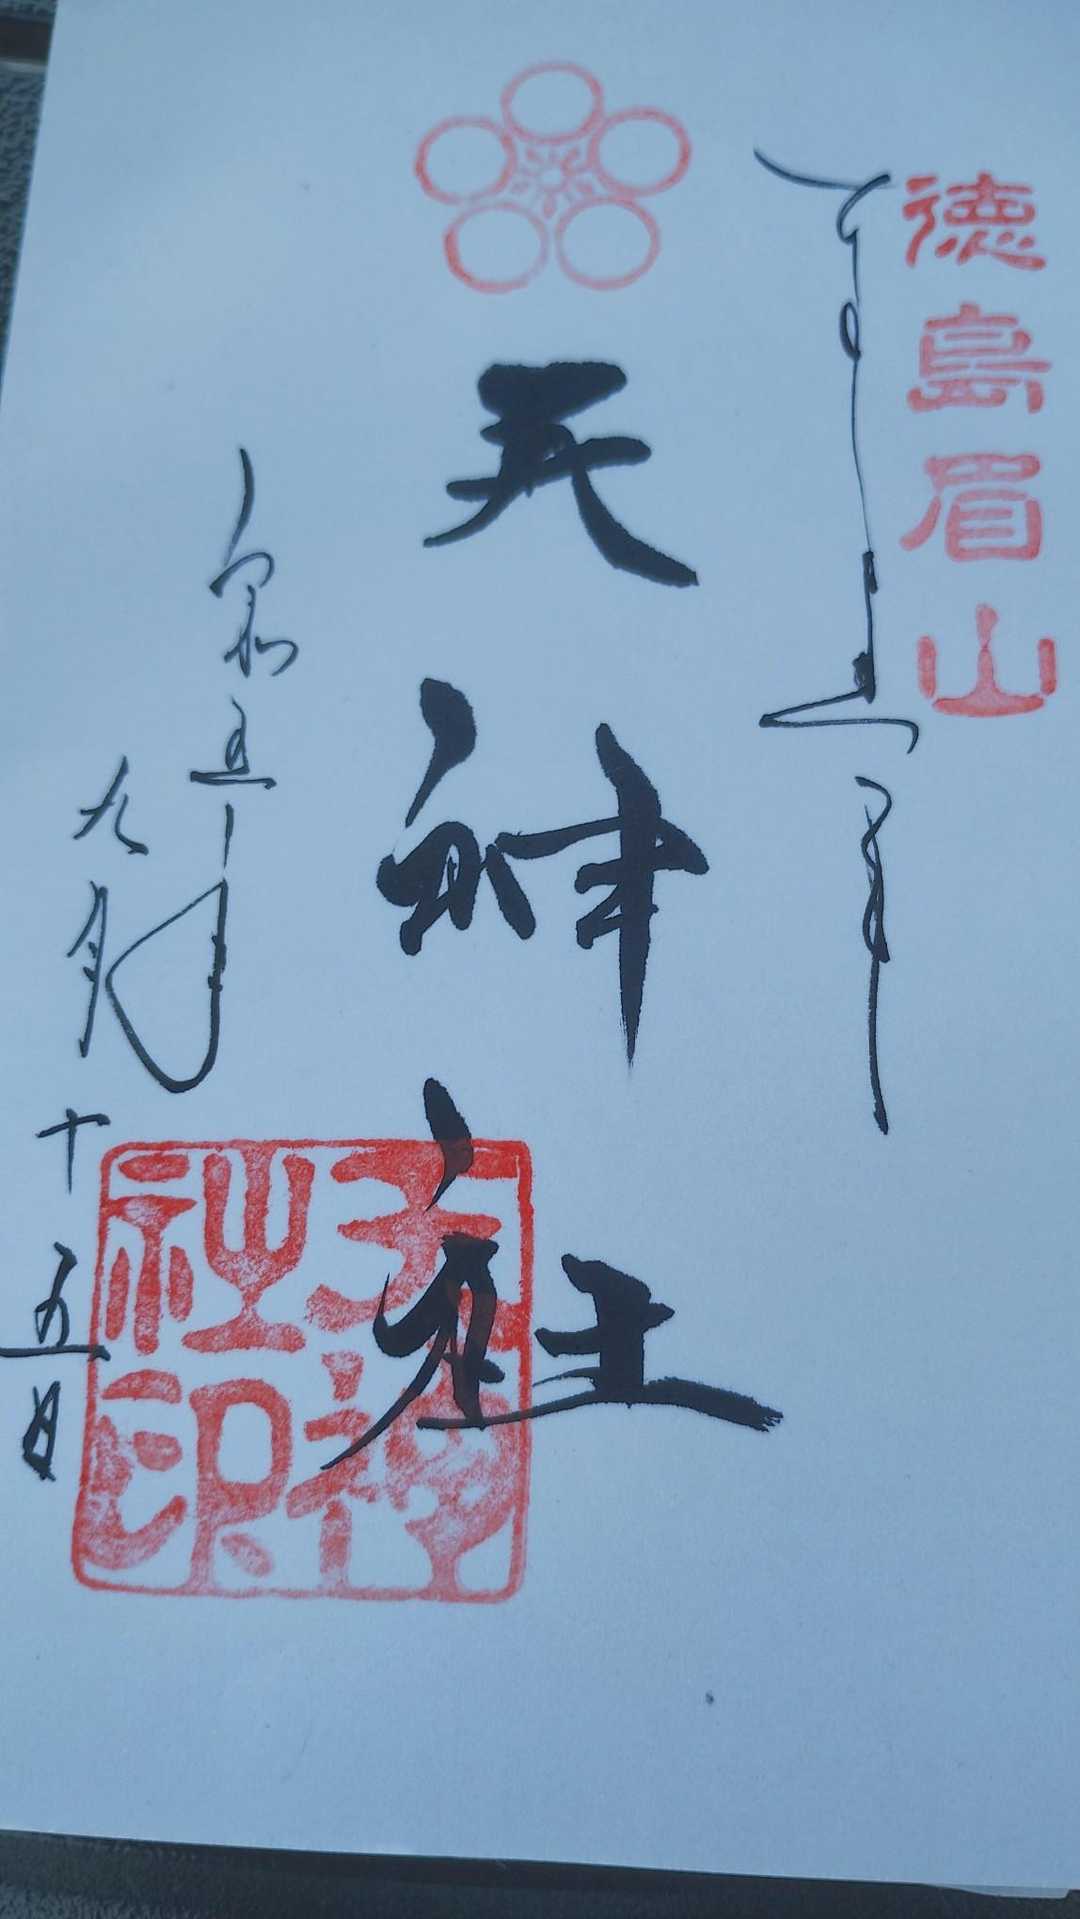 徳島眉山
奉拝
天神社
天神社印
令和五年
九月十五日